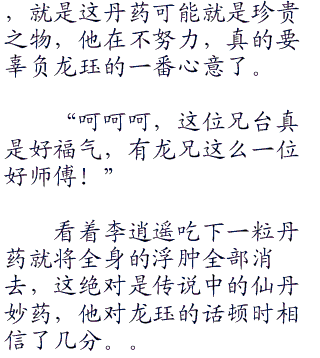 ，就是这丹药可能就是珍贵
之物，他在不努力，真的要
辜负龙珏的一番心意了。
“呵呵呵，这位兄台真
是好福气，有龙兄这么一位
好师傅！”
看着李逍遥吃下一粒丹
药就将全身的浮肿全部消
去，这绝对是传说中的仙丹
妙药，他对龙珏的话顿时相
信了几分。。